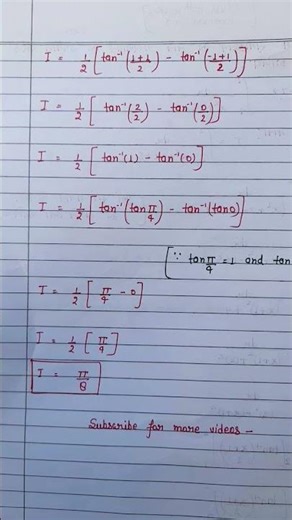 I = 1/2 [tan⁻¹((1+1)/2) - tan⁻¹((-1+1)/2)]
I = 1/2 [tan⁻¹(2/2) - tan⁻¹(0/2)]
I = 1/2 [tan⁻¹(1) - tan⁻¹(0)]
I = 1/2 [tan⁻¹(tan π/4) - tan⁻¹(tan 0)]
[∵ tan π/4 = 1 and tan
I = 1/2 [π/4 - 0]
I = 1/2 [π/4]
I = π/8
Subscribe for more videos -